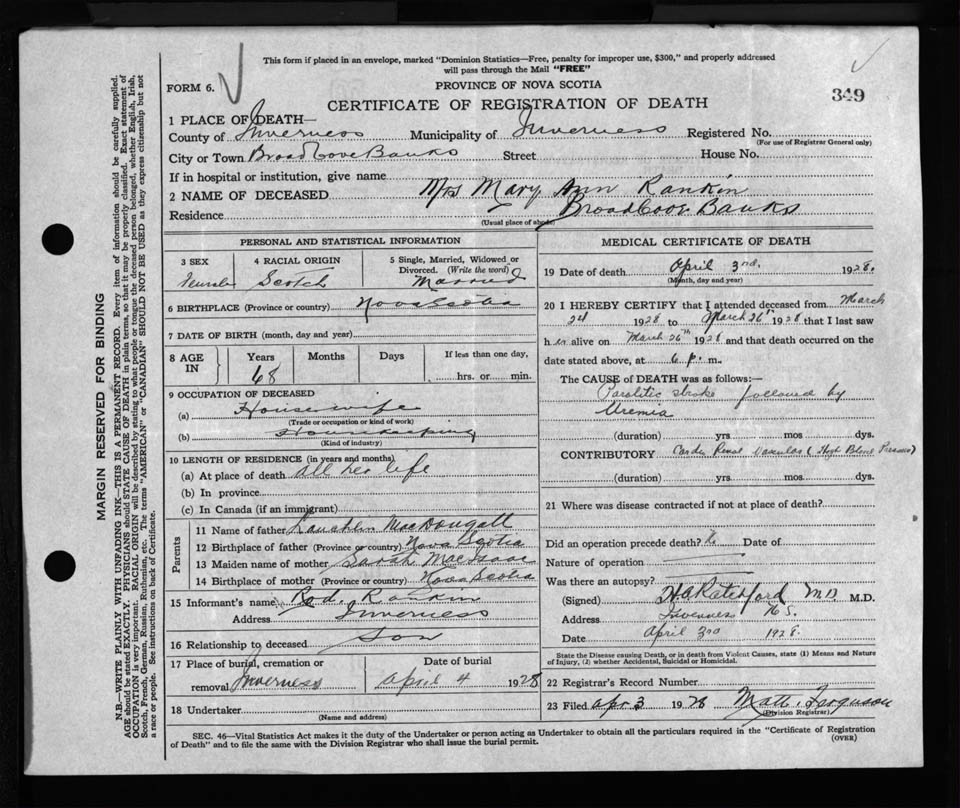 This form if placed in an envelope, marked "Dominion Statistics—Free, penalty for improper use, $300," and properly addressed
will pass through the Mail "FREE"
FORM 6.
PROVINCE OF NOVA SCOTIA
349
CERTIFICATE OF REGISTRATION OF DEATH
1 PLACE OF DEATH—
County of Inverness Municipality of Inverness Registered No.
(For use of Registrar General only)
City or Town Broad Cove Banks Street House No.
If in hospital or institution, give name
2 NAME OF DECEASED Mrs Mary Ann Rankin
Residence Broad Cove Banks
(Usual place of abode)
PERSONAL AND STATISTICAL INFORMATION
3 SEX 4 RACIAL ORIGIN 5 Single, Married, Widowed or
Divorced. (Write the word)
Female Scotch Married
6 BIRTHPLACE (Province or country) Nova Scotia
7 DATE OF BIRTH (month, day and year)
8 AGE IN Years Months Days If less than one day,
68 hrs. or min.
9 OCCUPATION OF DECEASED
(a) Housewife
(Trade or occupation or kind of work)
(b) Housekeeping
(Kind of industry)
10 LENGTH OF RESIDENCE (in years and months)
(a) At place of death all her life
(b) In province
(c) In Canada (if an immigrant)
Parents
11 Name of father MacDougall
12 Birthplace of father (Province or country) Nova Scotia
13 Maiden name of mother Sarah MacIsaac
14 Birthplace of mother (Province or country) Nova Scotia
15 Informant's name Rod. Rankin
Address Inverness
16 Relationship to deceased Son
17 Place of burial, cremation or Date of burial
removal Inverness April 4 1928
18 Undertaker
(Name and address)
MEDICAL CERTIFICATE OF DEATH
19 Date of death April 3rd. 1928.
(Month, day and year)
20 I HEREBY CERTIFY that I attended deceased from March
1928 to March 26th 1928 that I last saw
her alive on March 26th 1928 and that death occurred on the
date stated above, at 6 p. m.
The CAUSE of DEATH was as follows:—
Paralitic stroke followed by
Uremia
(duration) yrs mos dys.
CONTRIBUTORY Cardio Renal (High Blood Pressure)
(duration) yrs. mos. dys.
21 Where was disease contracted if not at place of death?
Did an operation precede death? No Date of
Nature of operation
Was there an autopsy?
(Signed) H A Ratchford MD M.D.
Address Inverness N.S.
Date April 3rd 1928.
State the Disease causing Death, or in death from Violent Causes, state (1) Means and Nature
of Injury, (2) whether Accidental, Suicidal or Homicidal.
22 Registrar's Record Number
23 Filed Apr 3 1928 Matt. Ferguson
(Division Registrar)
SEC. 46—Vital Statistics Act makes it the duty of the Undertaker or person acting as Undertaker to obtain all the particulars required in the "Certificate of Registration
of Death" and to file the same with the Division Registrar who shall issue the burial permit.
(OVER)
MARGIN RESERVED FOR BINDING
N.B.—WRITE PLAINLY WITH UNFADING INK—THIS IS A PERMANENT RECORD. Every item of information should be carefully supplied.
AGE should be stated EXACTLY. PHYSICIANS should STATE CAUSE OF DEATH in plain terms, so that it may be properly classified. Exact statement of
OCCUPATION is very important. RACIAL ORIGIN will be described by stating to what people or tongue the deceased person belonged, whether English, Irish,
Scotch, French, German, Russian, Ruthenian, etc. The terms "AMERICAN" or "CANADIAN" SHOULD NOT BE USED as they express citizenship but not
a race or people. See instructions on back of Certificate.